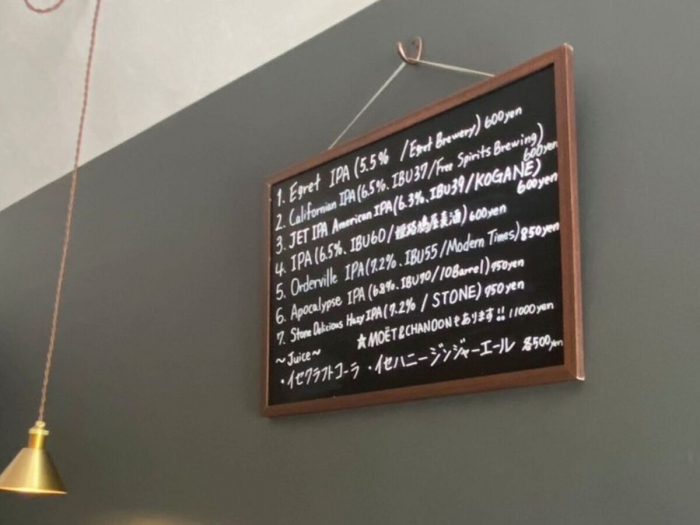 1. Egret IPA (5.5% / Egret Brewery) 600yen
2. Californian IPA (6.5%. IBU37/Free Spirits Brewing) 600yen
3. JET IPA American IPA (6.3%. IBU39/KOGANE) 600yen
4. IPA (6.5%. IBU60/姫路麦酒) 600yen
5. Orderville IPA (7.2%. IBU55/Modern Times) 850yen
6. Apocalypse IPA (6.8% IBU70/10Barrel) 950yen
7. Stone Delicious Hazy IPA (7.2% / STONE) 950yen
~Juice~ ★MOËT&CHANDONもあります!! 11000yen
・イセクラフトコーラ ・イセハニージンジャーエール 各500yen